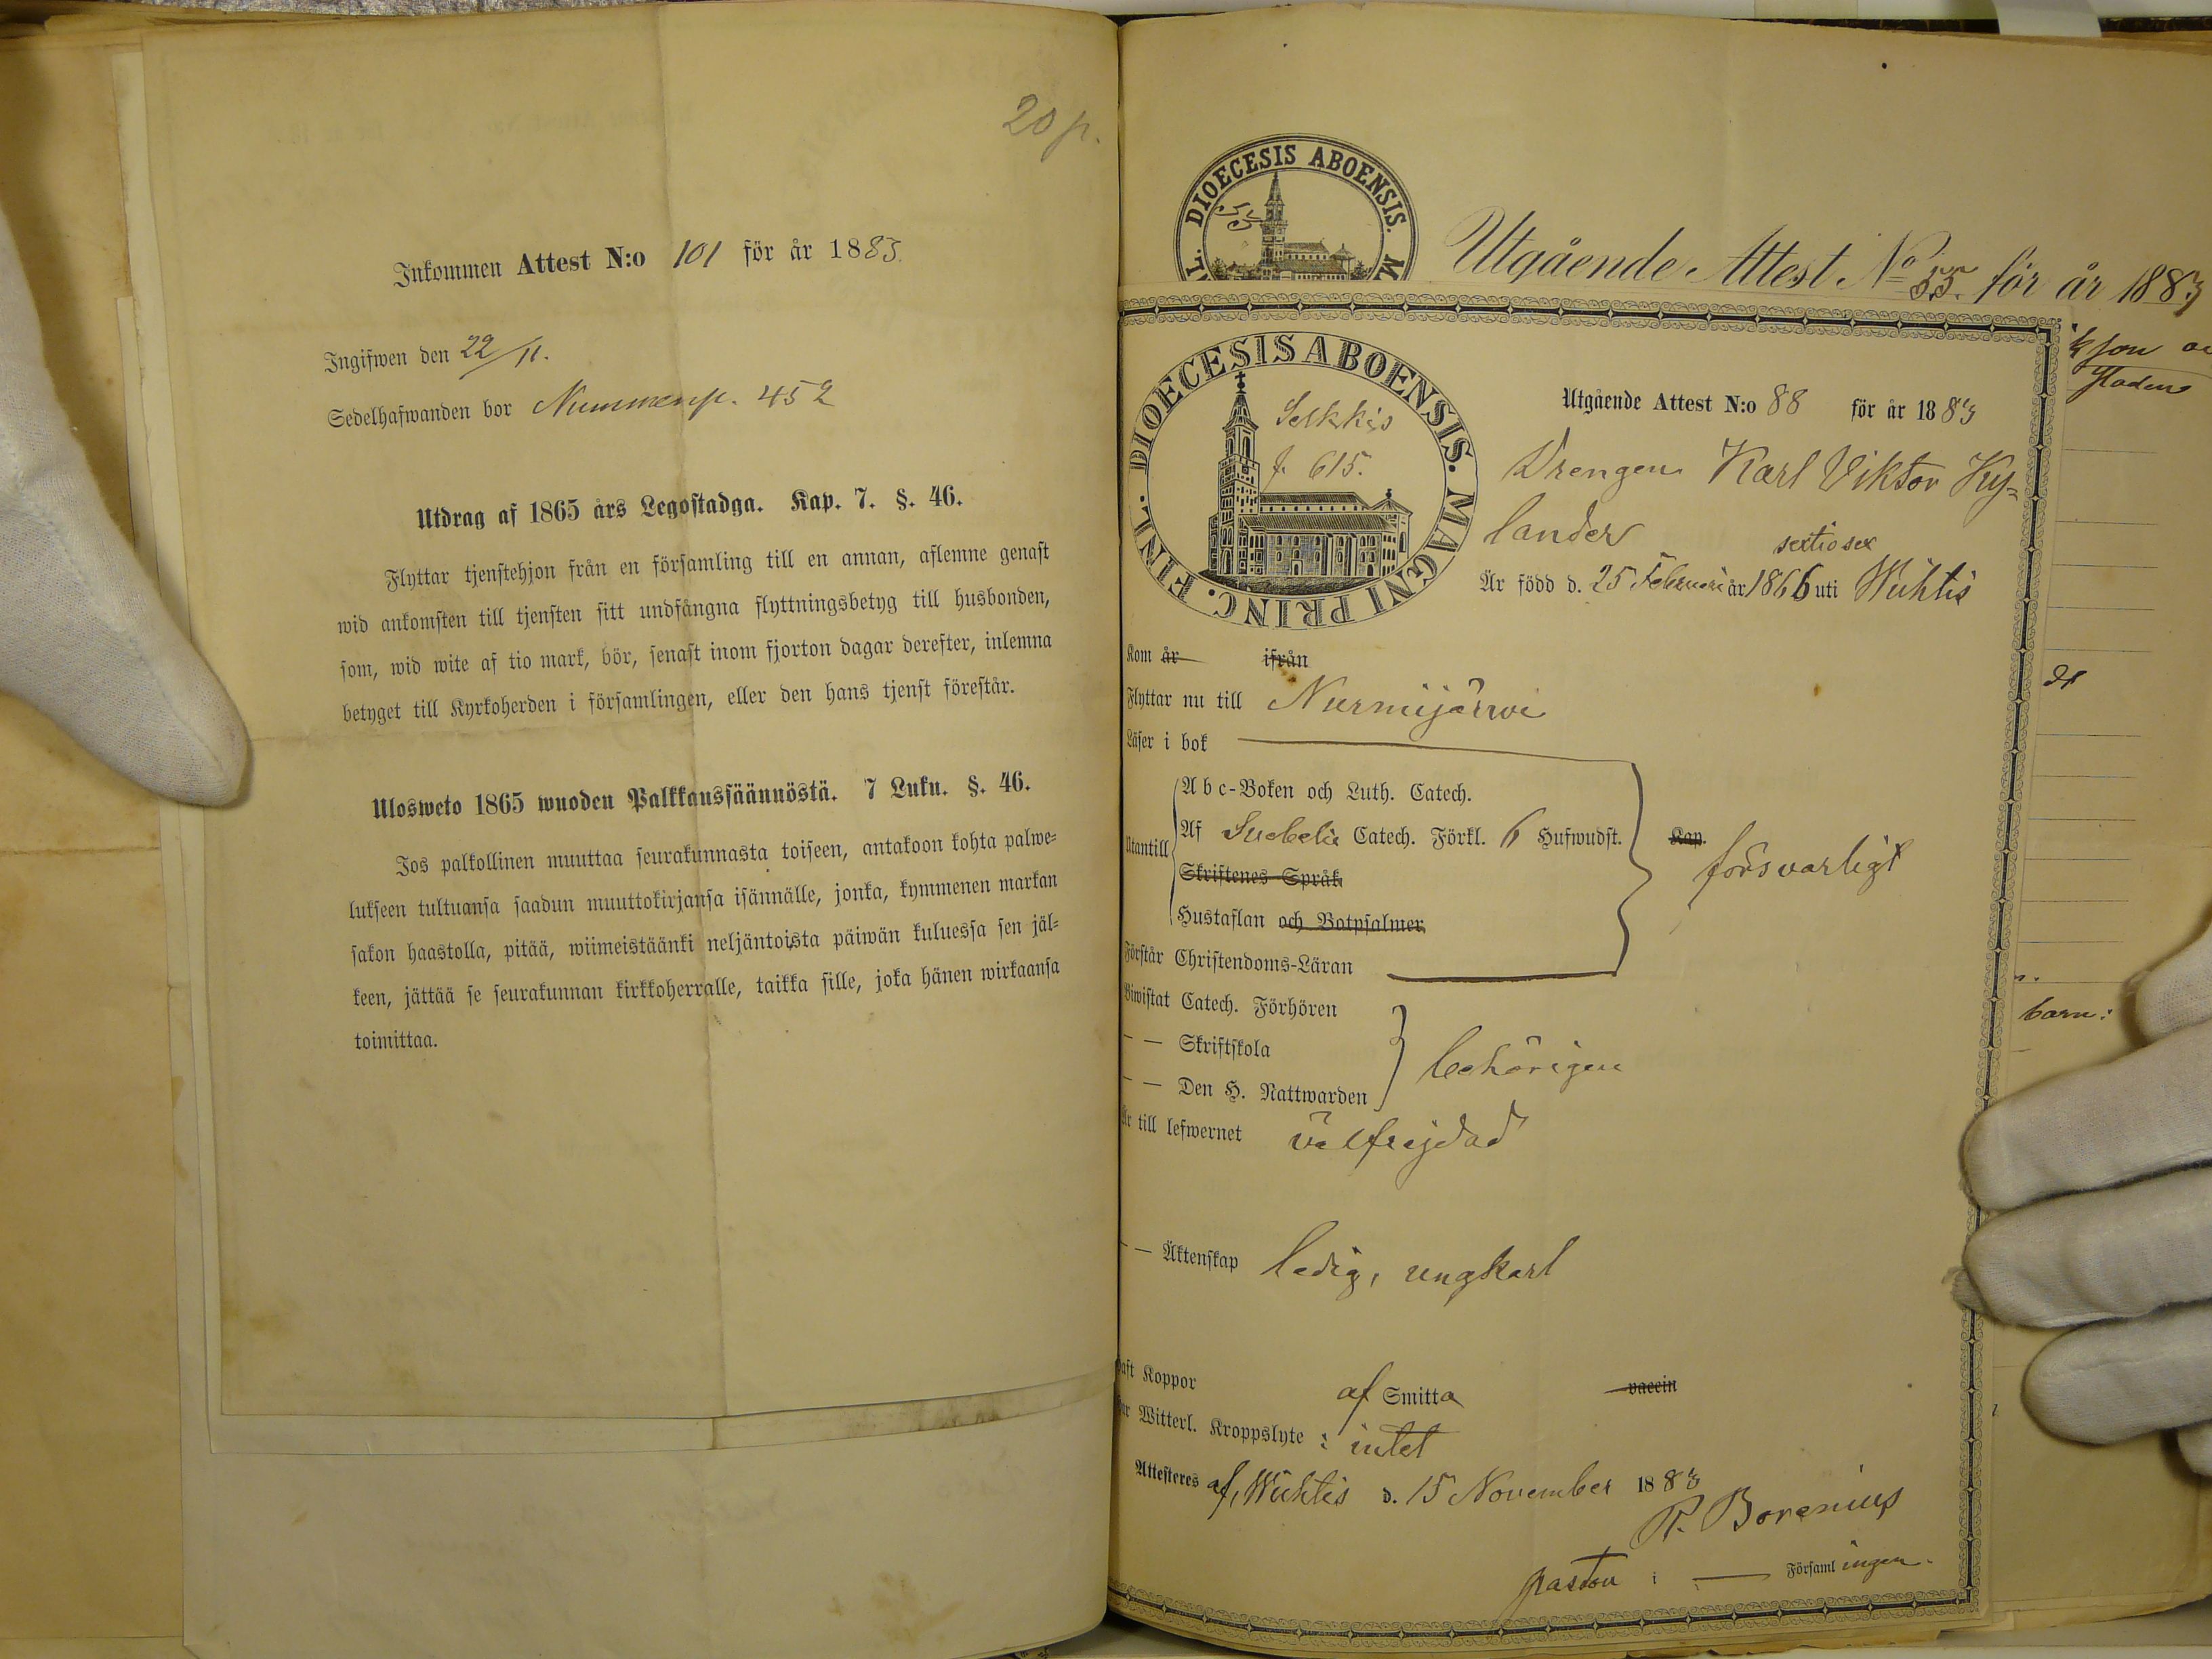 20 p.
Inkommen Attest N:o 101 för år 1883.
Ingifwen den 22/11.
Sedelhafwanden bor Nummenp. 452
Utdrag af 1865 års Legostadga. Kap. 7. §. 46.
Flyttar tjenstehjon från en församling till en annan, aflemne genast
wid ankomsten till tjensten sitt undfångna flyttningsbetyg till husbonden,
som, wid wite af tio mark, bör, senast inom fjorton dagar derefter, inlemna
betyget till Kyrkoherden i församlingen, eller den hans tjenst förestår.
Ulosweto 1865 wuoden Palkkaussäännöstä. 7 Luku. §. 46.
Jos palkollinen muuttaa seurakunnasta toiseen, antakoon kohta palwe=
lukseen tultuansa saadun muuttokirjansa isännälle, jonka, kymmenen markan
sakon haastolla, pitää, wiimeistäänki neljäntoista päiwän kuluessa sen jäl=
keen, jättää se seurakunnan kirkkoherralle, taikka sille, joka hänen wirkaansa
toimittaa.
DIOECESIS ABOENSIS.
55
Utgående Attest No 55. för år 1883
DIOECESIS ABOENSIS. MAGNI PRINC. FINL.
Selkkis
f. 615.
Utgående Attest N:o 88 för år 1883
Drengen Karl Viktor Ky=
lander
sextiosex
Är född d. 25 Februari år 1866 uti Wichtis
Kom år ifrån
Flyttar nu till Nurmijärwi
Läser i bok
Abc-Boken och Luth. Catech.
Utantill Af Svebelii Catech. Förkl. 6 Hufwudst. Kap. försvarligt
Skriftenes Språk
Hustaflan och Botpsalmer
Förstår Christendoms-Läran
Biwistat Catech. Förhören
— — Skriftskola behörigen
— — Den H. Nattwarden
Är till lefwernet välfrejdad
— — Äktenskap ledig, ungkarl
Haft Koppor af Smitta vaccin
Har Witterl. Kroppslyte : intet
Attesteres af, Wichtis d. 15 November 1883
R. Borenius
pastor i — Församlingen.
barn: